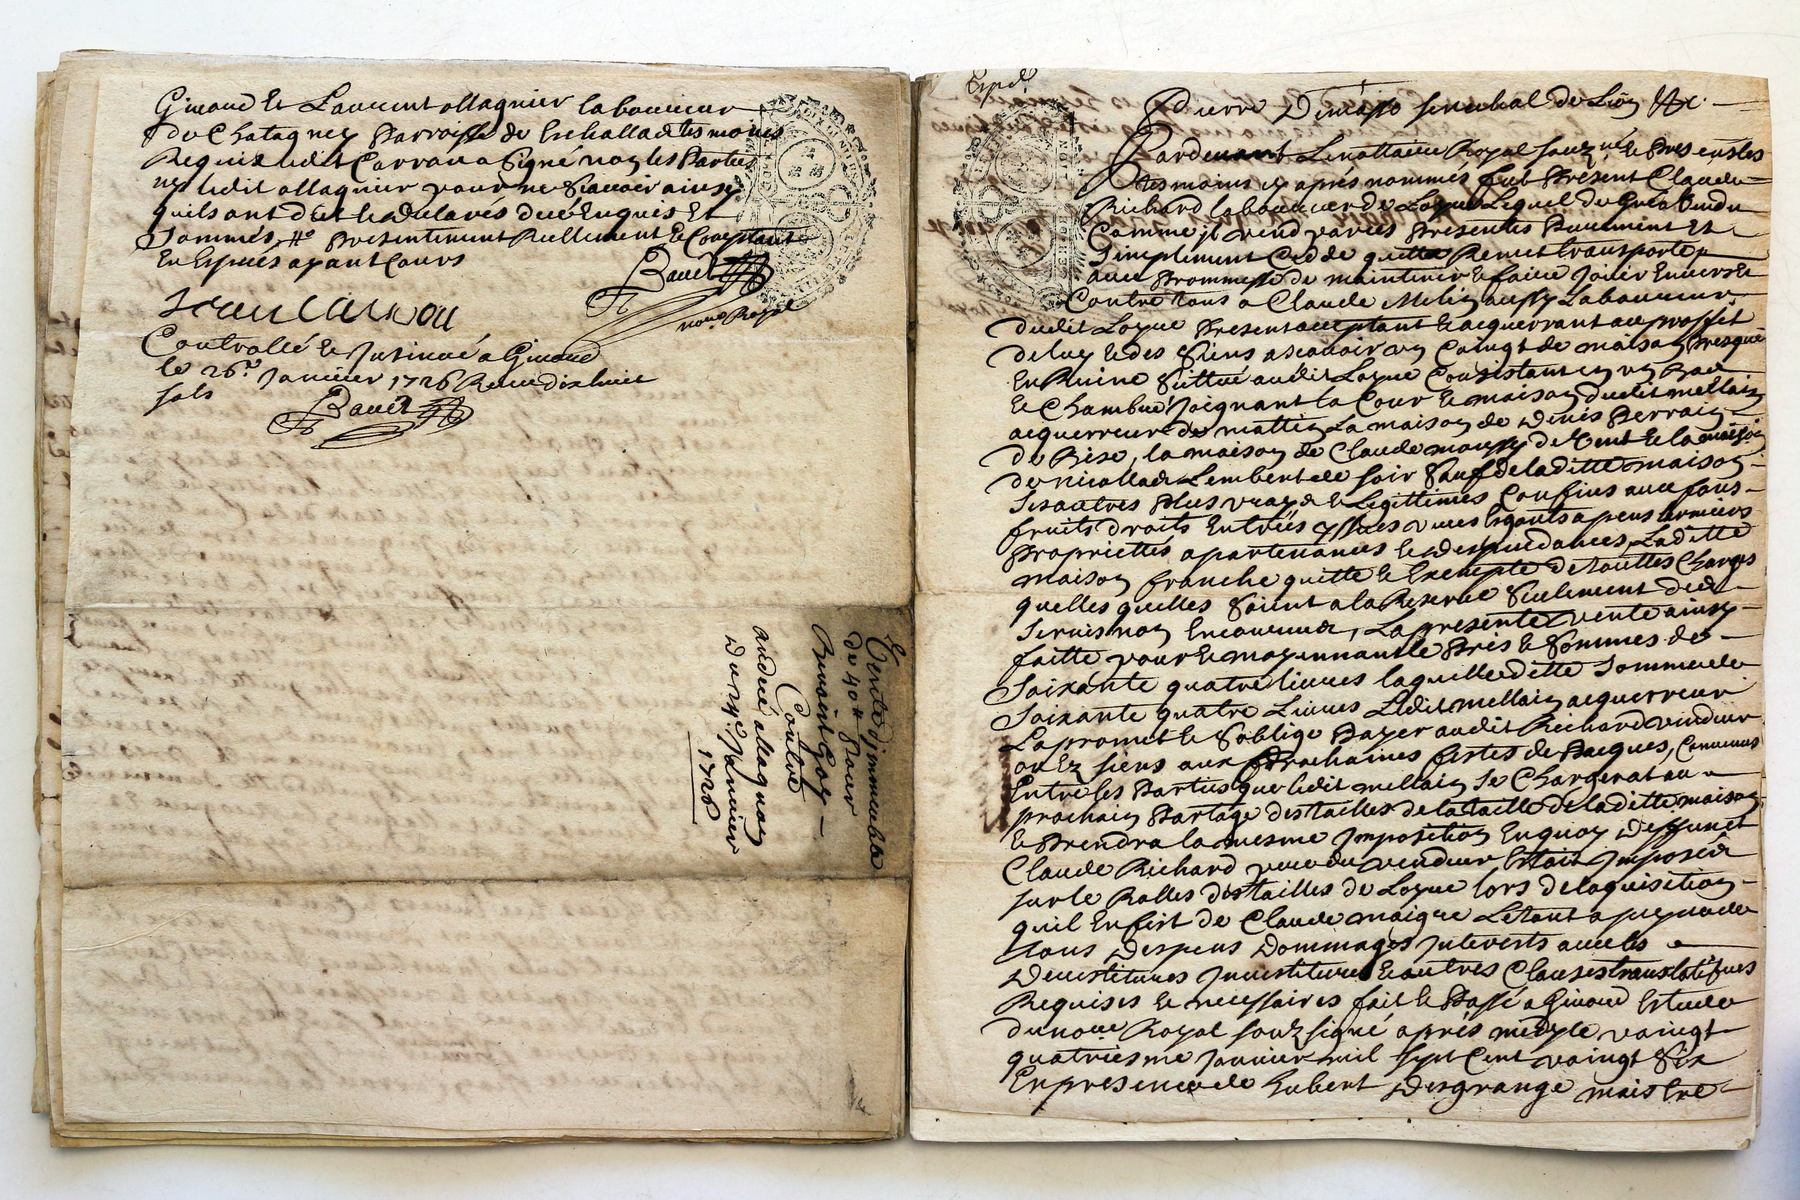 Giraud et Laurent allagnier laboureur
de Chatagney Parroisse de Eschallad tesmoins
Requis ledit Carra a signé non les Parties
ny ledit allagnier pour ne sçavoir ainsy
quils ont dit et declarés de ce Enquis Et
Sommés, presentement Reellement Et Comptant
En Especes ayant Cours
Bauet
no.re Royal
Controllé et Insinué a Giraud
le 26.e Janvier 1726 Receu dixhuit
sols
Bauet
Vente d'jmmeuble
de 40 # pour
Goy
Contre
André allagnon
Du 24.e Janvier
1726
Exped.
Pierre senechal de Lion &c.
Pardevant Le nottaire Royal souz.né et Presents les
tesmoins cy aprés nommés fut Présent Claude
Richard laboureur de Loyre Lequel de gré a Vendu
Comme il vend par ces Presentes Purement Et
Simplement Cedde quitte Remet transporte
avec Promesse de maintenir et faire Joüir Envers Et
Contre tous a Claude Mellin aussy Laboureur
dudit Loyre Present acceptant Et acquerrant au proffit
de luy et des Siens asçavoir un Coingt de maison Presque
En Ruine Sittué audit Loyre Consistant en un Bas
Et Chambre Joignant la Cour et maison dudit mellain
acquerreur de mattin La maison de Denis Perrain
de Bize, la maison de Claude moussy de Vent Et la maison
de nicollas Lembert de soir Sauf de laditte maison
Ses autres Plus vrays et Legittimes Confins avec fons
fruits droits Entrées yssües vues Esgouts apens
Proprietés apartenances et despendances Laditte
maison franche quitte et Exempte de touttes Charges
quelles quelles Soient a la Reserve Seulement du
Servis non Encourus, La presente Vente ainsy
faitte pour et moyennant le Prix et Sommes de
Soixante quatre livres laquelle ditte Somme de
Soixante quatre Livres Ledit mellain acquerreur
La promet et S'oblige Payer audit Richard vendeur
ou Ez siens aux Prochaines festes de Pacques, Convenus
Entre les Parties que ledit mellain Se Chargerat au
prochain Partage des tailles de la taille de laditte maison
Et Prendra la mesme Imposition En quoy Deffunct
Claude Richard pere du vendeur Estait Imposé
sur le Rolles des tailles de Loyre lors de laquisition
quil En fist de Claude maigre Le tout a peyne de
tous Despens Dommages Interests avec les
Devestitures Investitures Et autres Clauses translatifves
Requises et necessaires fait et Passé a Giraud Estude
du no.re Royal souz signé aprés midy le vaingt
quatriesme Janvier mil sept Cent vaingt Six
En presence de hubert Desgrange maistre